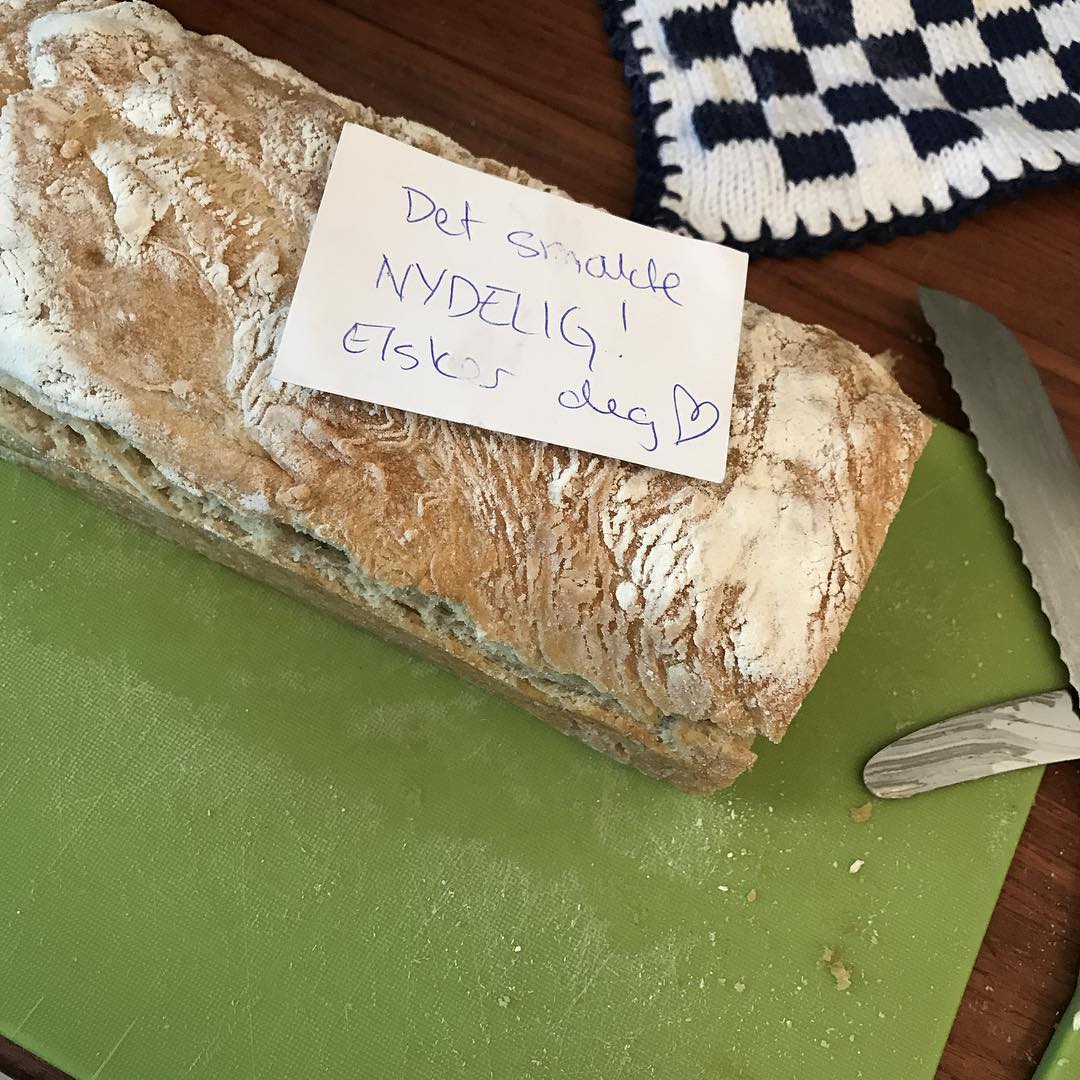 Det smakte
NYDELIG!
Elsker deg ♡